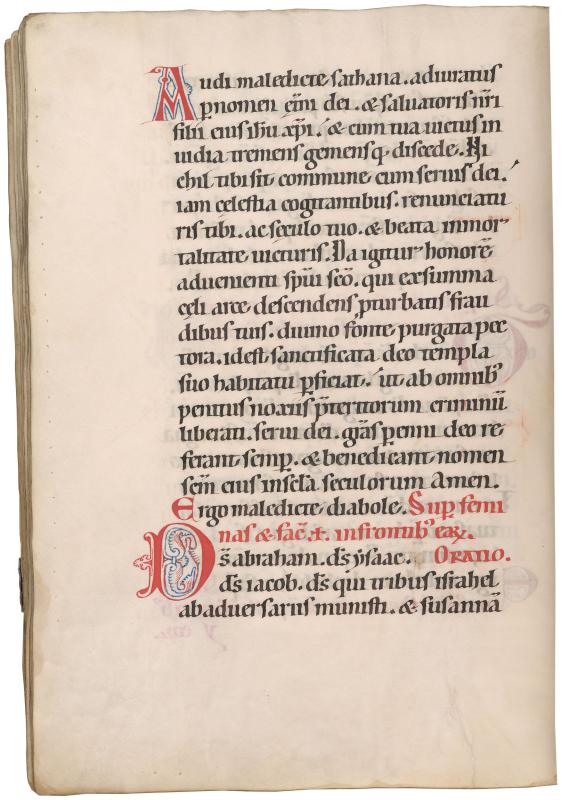 Audi maledicte sathana. adiuratus
p̱ nomen et̄ni dei. & saluatoris nr̄i
filii eius ih̄u xp̄i. & cum tua uictus in
uidia tremens gemensq; discede. Ni
chil tibi sit commune cum seruis dei.
iam celestia cogitantibus. renunciatu
ris tibi. ac seculo tuo. & beata inmor
talitate uicturis. Da igitur honorē
aduenienti sp̄ui sc̄o. qui ex summa
cęli arce descendens p̱turbatis frau
dibus tuis. diuino fonte purgata pec
tora. id est sanctificata deo templa
suo habitatu p̱ficiat. ut ab omnib;
penitus noxiis p̄teritorum criminū
liberati. serui dei. gr̄as p̱enni deo re
ferant semp̱. & benedicant nomen
sc̄m eius in scl̄a seculorum Amen.
Ergo maledicte diabole. Sup̱ femi
nas & fac̄ .+. in frontib; eaꝝ.
Ds̄ abraham. ds̄ ysaac. Oratio.
ds̄ iacob. ds̄ qui tribus israhel
ab aduersariis munisti. & susannā